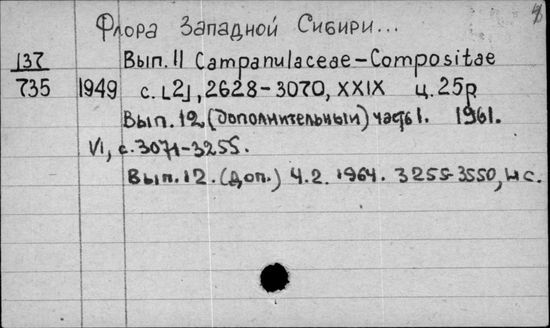 Флора Западной Сибири...
137 Вып. 11 Campanulaceae-Compositae
735 1949 с. [2], 2628-3070, XXIX ц. 25р
Вып. 12 (дополнительный) часть 1. 1961.
VI, с. 3071-3255.
Вып. 12. (Доп.) Ч. 2. 1964. 3255-3550, с.